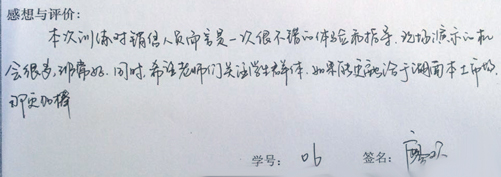 感想与评价:
本次训练对销售人员而言是一次很不错的体验和指导。现场演示的机
会很多,非常好。同时,希望老师们关注学生群体。如果能更融洽于湖南本土市场,
那更加棒
学号: 06 签名: